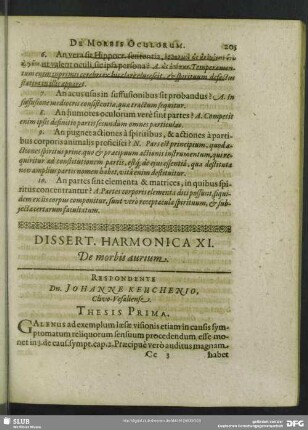 De Morbis Oculorum. 205
6. An vera sit Hippocr. sententia,
ut valent oculi, sic ipsa persona? A.
tum enim inprimis cerebri ex
stationibus illis apparet.
7. An acus usus in suffusionibus sit probandus? A. In
suffusione mediocris consistentia, qua tractum sequitur.
8. An humores oculorum verè sint partes? A. Competit
enim ipsis definitio partis secundum omnes particulas.
9. An pugnet actiones à spiritibus, & actiones à parti-
bus corporis animalis proficisci? N. Pars est principium, quod a-
ctiones perficit primo quo & præcipuum actionis instrumentum, qui re-
quiritur ad constitutionem partis, estq; de ejus essentia, qua destituta
non amplius partis nomen habet, vitâ enim destituitur.
10. An partes sint elementa & matrices, in quibus spi-
ritus concentrantur? A. Partes corporis elementa dici possunt, siqui-
dem ex iis corpus componitur, sunt verò receptacula spirituum, & sub-
jecta certarum facultatum.
DISSERT. HARMONICA XI.
De morbis aurium.
Respondente
Dn. Johanne Keuchenio,
Clivo-Vesaliense.
Thesis Prima.
Galenus ad exemplum læsæ visionis etiam in causis sym-
ptomatum reliquorum sensuum procedendum esse mo-
net in 3 de caus. sympt. cap. 2. Præcipuè verò auditus magnam
Cc 3 habet
SLUB
DFG